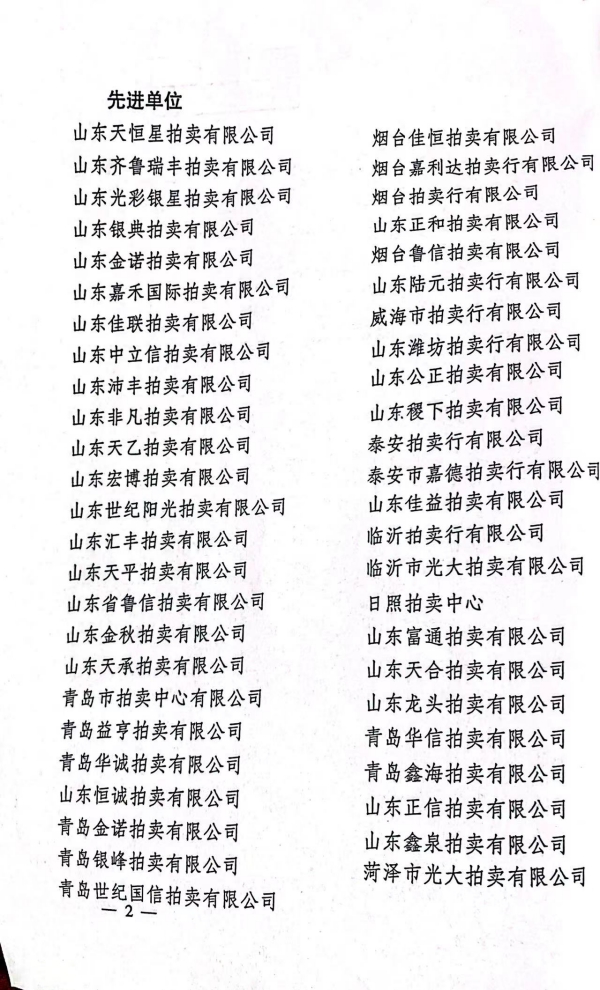 先进单位
山东天恒星拍卖有限公司
山东齐鲁瑞丰拍卖有限公司
山东光彩银星拍卖有限公司
山东银典拍卖有限公司
山东金诺拍卖有限公司
山东嘉禾国际拍卖有限公司
山东佳联拍卖有限公司
山东中立信拍卖有限公司
山东沛丰拍卖有限公司
山东非凡拍卖有限公司
山东天乙拍卖有限公司
山东宏博拍卖有限公司
山东世纪阳光拍卖有限公司
山东汇丰拍卖有限公司
山东天平拍卖有限公司
山东省鲁信拍卖有限公司
山东金秋拍卖有限公司
山东天承拍卖有限公司
青岛市拍卖中心有限公司
青岛益亨拍卖有限公司
青岛华诚拍卖有限公司
山东恒诚拍卖有限公司
青岛金诺拍卖有限公司
青岛银峰拍卖有限公司
青岛世纪国信拍卖有限公司
烟台佳恒拍卖有限公司
烟台嘉利达拍卖行有限公司
烟台拍卖行有限公司
山东正和拍卖有限公司
烟台鲁信拍卖有限公司
山东陆元拍卖行有限公司
威海市拍卖行有限公司
山东潍坊拍卖行有限公司
山东公正拍卖有限公司
山东稷下拍卖有限公司
泰安拍卖行有限公司
泰安市嘉德拍卖行有限公司
山东佳益拍卖有限公司
临沂拍卖行有限公司
临沂市光大拍卖有限公司
日照拍卖中心
山东富通拍卖有限公司
山东天合拍卖有限公司
山东龙头拍卖有限公司
青岛华信拍卖有限公司
青岛鑫海拍卖有限公司
山东正信拍卖有限公司
山东鑫泉拍卖有限公司
菏泽市光大拍卖有限公司
— 2 —